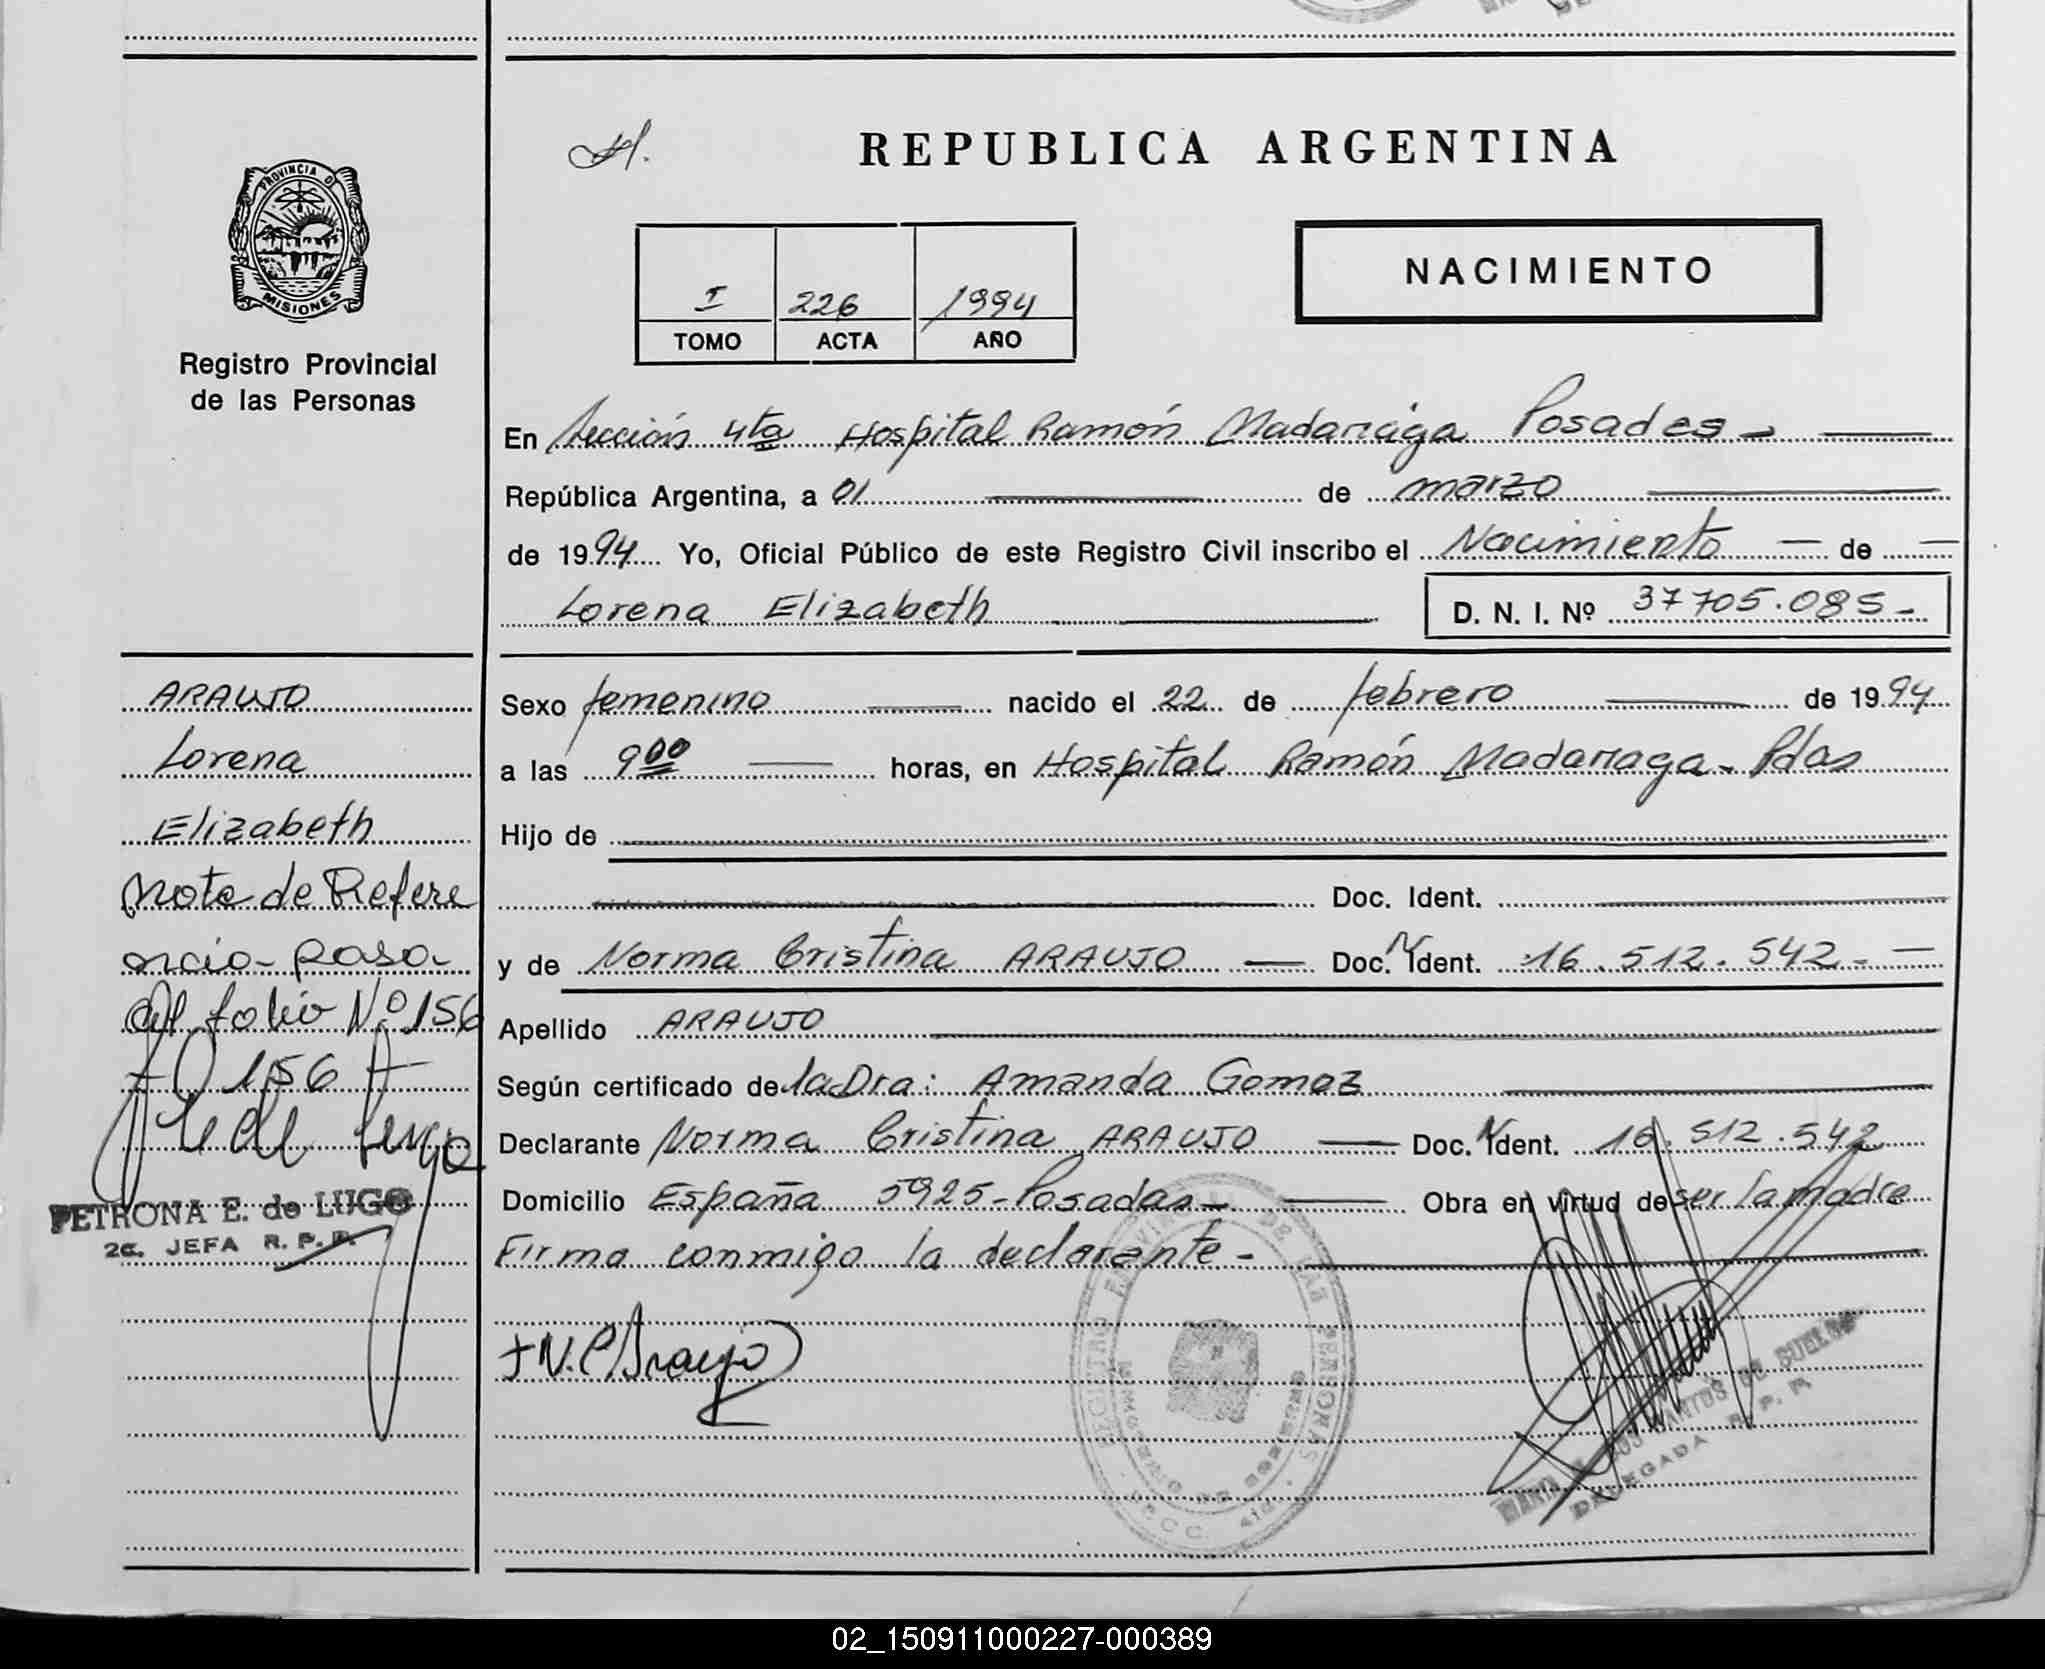 H.
REPUBLICA ARGENTINA
PROVINCIA D
MISIONES
Registro Provincial
de las Personas
I 226 1994
TOMO ACTA AÑO
NACIMIENTO
En Sección 4ta Hospital Ramón Madariaga Posadas -
República Argentina, a 01 de marzo
de 1994 Yo, Oficial Público de este Registro Civil inscribo el Nacimiento de
Lorena Elizabeth D. N. I. Nº 37705.085-
ARAUJO
Lorena
Elizabeth
Nota de Refere
ncia- pasa-
al folio Nº 156
fº 156
PETRONA E. de LUGO
2a. JEFA R. P. P.
Sexo femenino nacido el 22 de febrero de 1994
a las 9 00 horas, en Hospital Ramón Madariaga - Pdas
Hijo de
Doc. Ident.
y de Norma Cristina ARAUJO Doc. N Ident. 16.512.542.-
Apellido ARAUJO
Según certificado de la Dra: Amanda Gomez
Declarante Norma Cristina ARAUJO Doc. N Ident. 16.512.542
Domicilio España 5925-Posadas- Obra en virtud de ser la madre
Firma conmigo la declarante-
N.C Araujo
REGISTRO PROVINCIAL DE LAS PERSONAS
SANTOS DE
DELEGADA R. P. P.
02_150911000227-000389